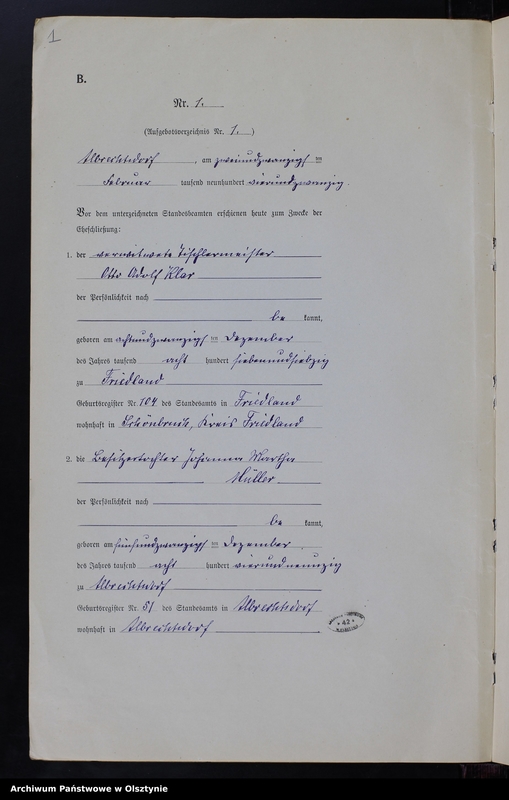 1
B.
Nr. 1.
(Aufgebotsverzeichnis Nr. 1.)
Albrechtsdorf, am zweiundzwanzigsten
Februar tausend neunhundert vierundzwanzig.
Vor dem unterzeichneten Standesbeamten erschienen heute zum Zwecke der
Eheschließung:
1. der verwitwete Tischlermeister
Otto Adolf Klar
der Persönlichkeit nach
be kannt,
geboren am achtundzwanzigsten Dezember
des Jahres tausend acht hundert siebenundsiebzig
zu Friedland
Geburtsregister Nr. 104 des Standesamts in Friedland
wohnhaft in Schönbruch, Kreis Friedland
2. die Besitzertochter Johanna Martha
Müller
der Persönlichkeit nach
be kannt,
geboren am fünfundzwanzigsten Dezember
des Jahres tausend acht hundert vierundneunzig
zu Albrechtsdorf
Geburtsregister Nr. 51 des Standesamts in Albrechtsdorf
wohnhaft in Albrechtsdorf
* 42 *
Archiwum Państwowe w Olsztynie